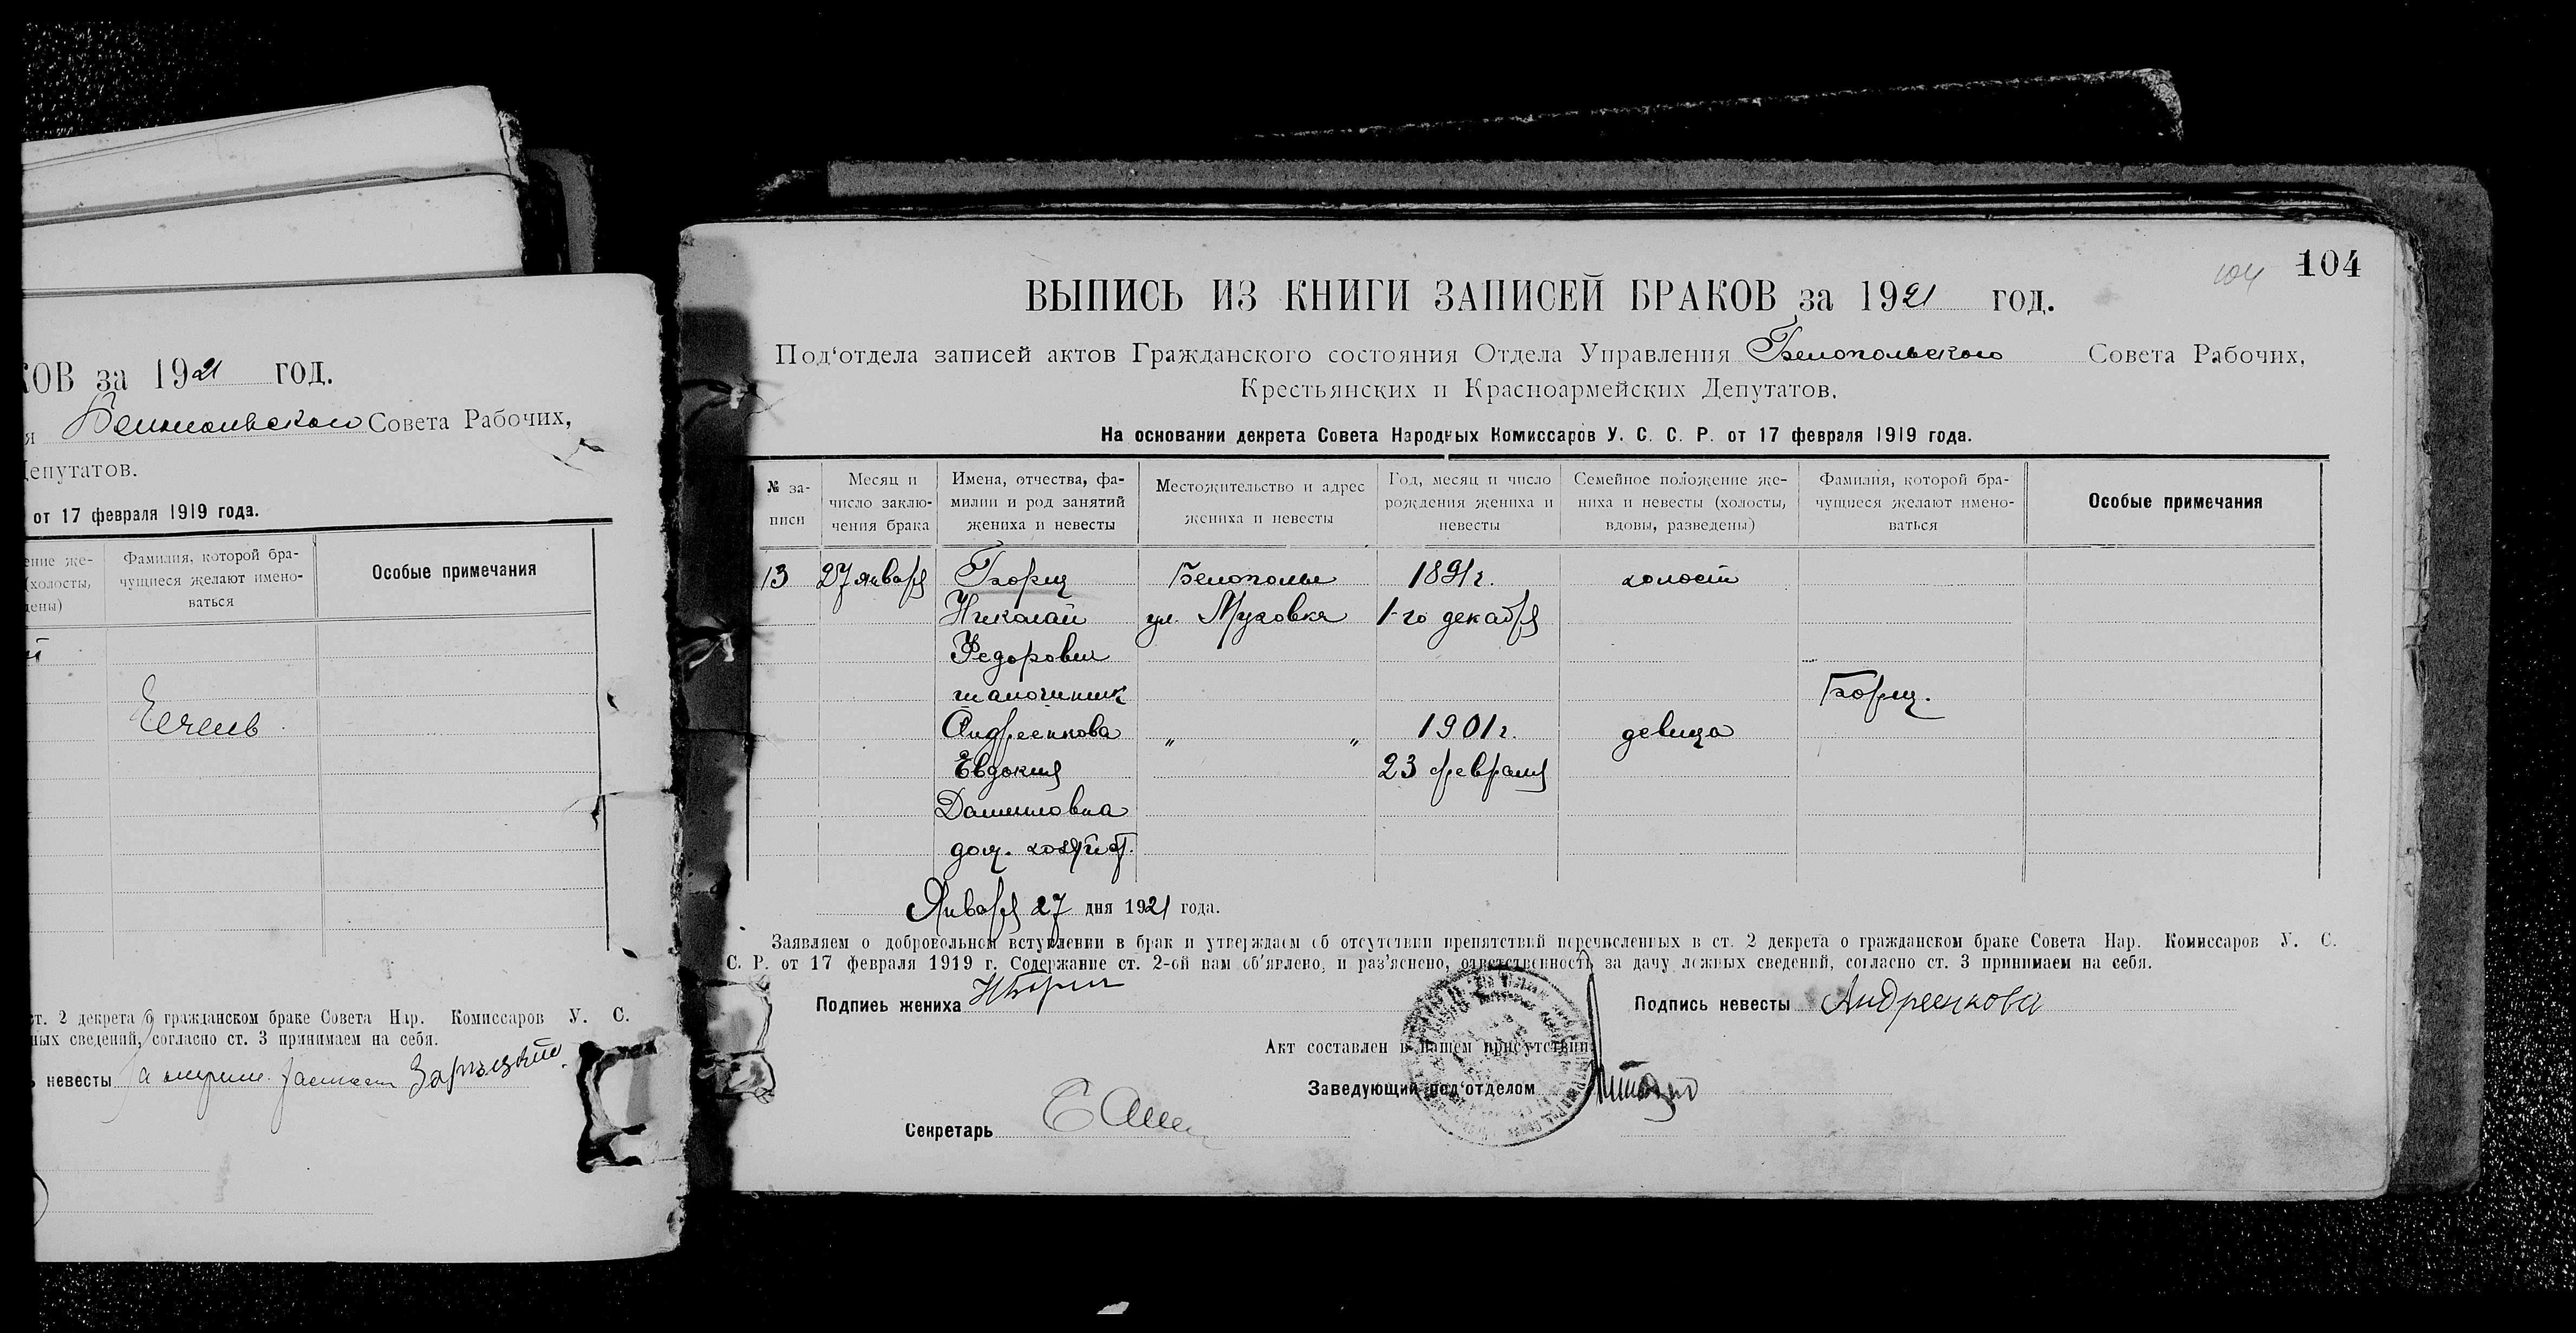 КОВ за 1921 год.
я Белопольского Совета Рабочих,
Депутатов.
от 17 февраля 1919 года.
ение же-
(холосты,
дены)
Фамилия, которой бра-
чущиеся желают имено-
ваться
Особые примечания
й
ст. 2 декрета о гражданском браке Совета Нар. Комиссаров У. С.
ных сведений, согласно ст. 3 принимаем на себя.
ь невесты
104
104
ВЫПИСЬ ИЗ КНИГИ ЗАПИСЕЙ БРАКОВ за 1921 год.
Под'отдела записей актов Гражданского состояния Отдела Управления Белопольского Совета Рабочих,
Крестьянских и Красноармейских Депутатов.
На основании декрета Совета Народных Комиссаров У. С. С. Р. от 17 февраля 1919 года.
№ за-
писи
Месяц и
число заклю-
чения брака
Имена, отчества, фа-
милии и род занятий
жениха и невесты
Местожительство и адрес
жениха и невесты
Год, месяц и число
рождения жениха и
невесты
Семейное положение же-
ниха и невесты (холосты,
вдовы, разведены)
Фамилия, которой бра-
чущиеся желают имено-
ваться
Особые примечания
13 27 января Борщ Белополье 1891 г. холост
Николай ул. Муховка 1-го декабря
Федорович
шапочник Борщ.
Андреенкова " " 1901 г. девица
Евдокия 23 февраля
Данииловна
дом. хозяйст.
Января 27 дня 1921 года.
Заявляем о добровольном вступлении в брак и утверждаем об отсутствии препятствий перечисленных в ст. 2 декрета о гражданском браке Совета Нар. Комиссаров У. С.
С. Р. от 17 февраля 1919 г. Содержание ст. 2-ой нам об'явлено, и раз'яснено, ответственность за дачу ложных сведений, согласно ст. 3 принимаем на себя.
Подпись жениха НБорщ Подпись невесты Андреенкова
Акт составлен в нашем присутствии:
Заведующий под'отделом
Секретарь